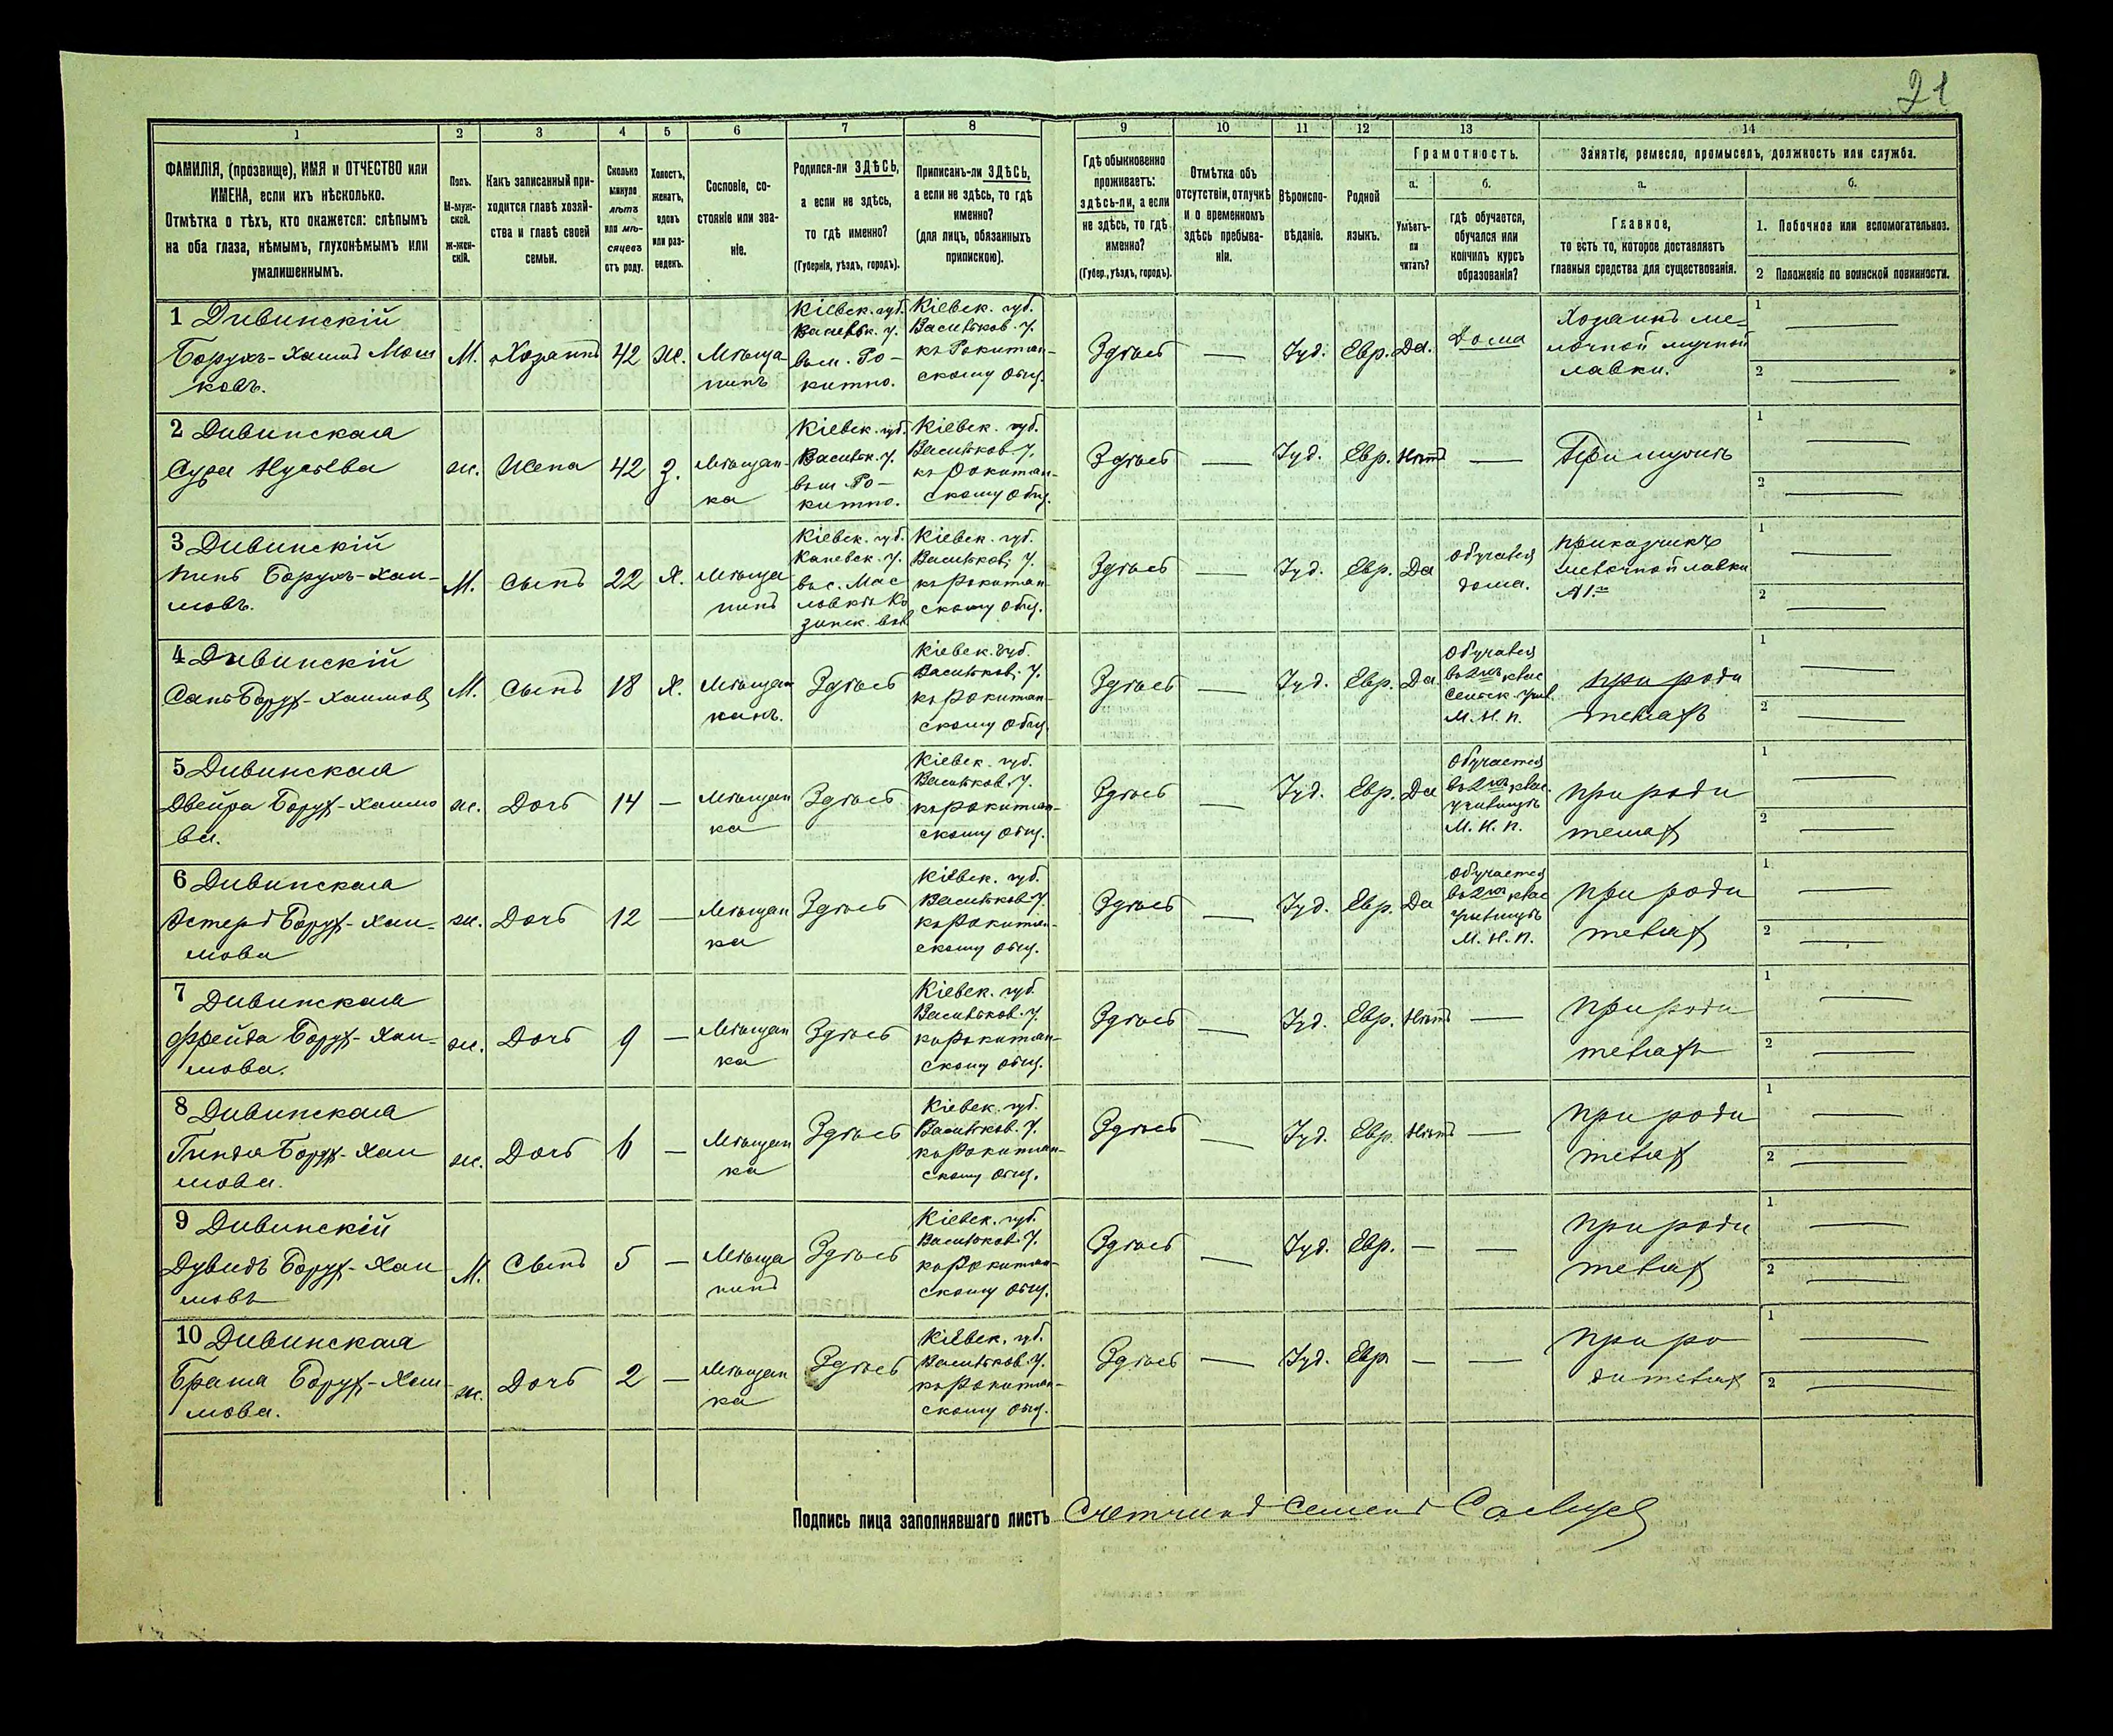 21
1 2 3 4 5 6 7 8 9 10 11 12 13 14
ФАМИЛІЯ, (прозвище), ИМЯ и ОТЧЕСТВО или
ИМЕНА, если ихъ нѣсколько.
Отмѣтка о тѣхъ, кто окажется: слѣпымъ
на оба глаза, нѣмымъ, глухонѣмымъ или
умалишеннымъ.
Полъ.
М-муж-
ской.
ж-жен-
скій.
Какъ записанный при-
ходится главѣ хозяй-
ства и главѣ своей
семьи.
Сколько
минуло
лѣтъ
или мѣ-
сяцевъ
отъ роду.
Холостъ,
женатъ,
вдовъ
или раз-
веденъ.
Сословіе, со-
стояніе или зва-
ніе.
Родился-ли ЗДѢСЬ,
а если не здѣсь,
то гдѣ именно?
(Губернія, уѣздъ, городъ).
Приписанъ-ли ЗДѢСЬ,
а если не здѣсь, то гдѣ
именно?
(для лицъ, обязанныхъ
припискою).
Гдѣ обыкновенно
проживаетъ:
здѣсь-ли, а если
не здѣсь, то гдѣ
именно?
(Губер., уѣздъ, городъ).
Отмѣтка объ
отсутствіи, отлучкѣ
и о временномъ
здѣсь пребыва-
ніи.
Вѣроиспо-
вѣданіе.
Родной
языкъ.
Грамотность.
а.
Умѣетъ-
ли
читать?
б.
гдѣ обучается,
обучался или
кончилъ курсъ
образованія?
Занятіе, ремесло, промыселъ, должность или служба.
а.
Главное,
то есть то, которое доставляетъ
главныя средства для существованія.
б.
1. Побочное или вспомогательное.
2 Положеніе по воинской повинности.
1 Дивинскій
Борухъ-Хаимъ Мош
ковъ.
М.
Хозяинъ
42
ж.
Мѣща
нинъ
Кіевск. губ.
у.
въ м. Ро-
китно.
Кіевск. губ.
Васильков. у.
къ Рокитян-
скому общ.
Здѣсь
—
Іуд.
Евр.
Да.
Дома
Хозяинъ ме-
лочной мучной
лавки.
1 —
2 —
2 Дивинская
Сура
ж.
Жена
42
з.
Мѣщан-
ка
Кіевск. губ.
Васильк. у.
въ м. Ро-
китно.
Кіевск. губ.
Васильков у.
къ Рокитян-
скому общ.
Здѣсь
—
Іуд.
Евр.
Нѣтъ
—
При мужѣ
1 —
2 —
3 Дивинскій
Борухъ-Хаи-
мовъ.
М.
Сынъ
22
Х.
Мѣща
нинъ
Кіевск. губ.
Каневск. у.
въ с. Мас
ловкѣ Ко
зинск. вол
Кіевск. губ.
Васильков. у.
къ Рокитян-
скому общ.
Здѣсь
—
Іуд.
Евр.
Да
Обучался
дома.
Приказчикъ
мелочной лавки
1 —
2 —
4 Дивинскій
Борух-Хаимов
М.
Сынъ
18
Х.
Мѣщан
Здѣсь
Кіевск. губ.
Васильков. у.
къ Рокитян-
скому общ.
Здѣсь
—
Іуд.
Евр.
Да
Обучался
въ 2хъ клас
Сельск. учил.
М. Н. П.
при роди
телях
1 —
2 —
5 Дивинская
Двейра Борух-Хаимо
ва.
ж.
Дочь
14
—
Мѣщан
ка
Здѣсь
Кіевск. губ.
Васильков. у.
къ Рокитян-
скому общ.
Здѣсь
—
Іуд.
Евр.
Да
Обучается
въ 2хъ клас.
училищѣ
М. Н. П.
при роди
телях
1 —
2 —
6 Дивинская
Эстеръ Борух-Хаи-
мова
ж.
Дочь
12
—
Мѣщан
ка
Здѣсь
Кіевск. губ.
Васильков. у.
къ Рокитян-
скому общ.
Здѣсь
—
Іуд.
Евр.
Да
Обучается
въ 2хъ клас
училищѣ
М. Н. П.
при роди
телях
1 —
2 —
7 Дивинская
Фрейда Борух-Хаи-
мова.
ж.
Дочь
9
—
Мѣщан
ка
Здѣсь
Кіевск. губ.
Васильков. у.
къ Рокитян-
скому общ.
Здѣсь
—
Іуд.
Евр.
Нѣтъ
—
при роди
телях
1 —
2 —
8 Дивинская
Гинда Борух-Хаи
мова.
ж.
Дочь
6
—
Мѣщан
ка
Здѣсь
Кіевск. губ.
Васильков. у.
къ Рокитян-
скому общ.
Здѣсь
—
Іуд.
Евр.
Нѣтъ
—
при роди
телях
1 —
2 —
9 Дивинскій
Дувидъ Борух-Хаи
мовъ
М.
Сынъ
5
—
Мѣща
нинъ
Здѣсь
Кіевск. губ.
Васильков. у.
къ Рокитян-
скому общ.
Здѣсь
—
Іуд.
Евр.
—
—
при роди
телях
1 —
2 —
10 Дивинская
Борух-Хаи-
мова.
ж.
Дочь
2
—
Мѣщан
ка
Здѣсь
Кіевск. губ.
Васильков. у.
къ Рокитян-
скому общ.
Здѣсь
—
Іуд.
Евр
—
—
при ро
дителях
1 —
2 —
Подпись лица заполнявшаго листъ Счетчикъ Семенъ